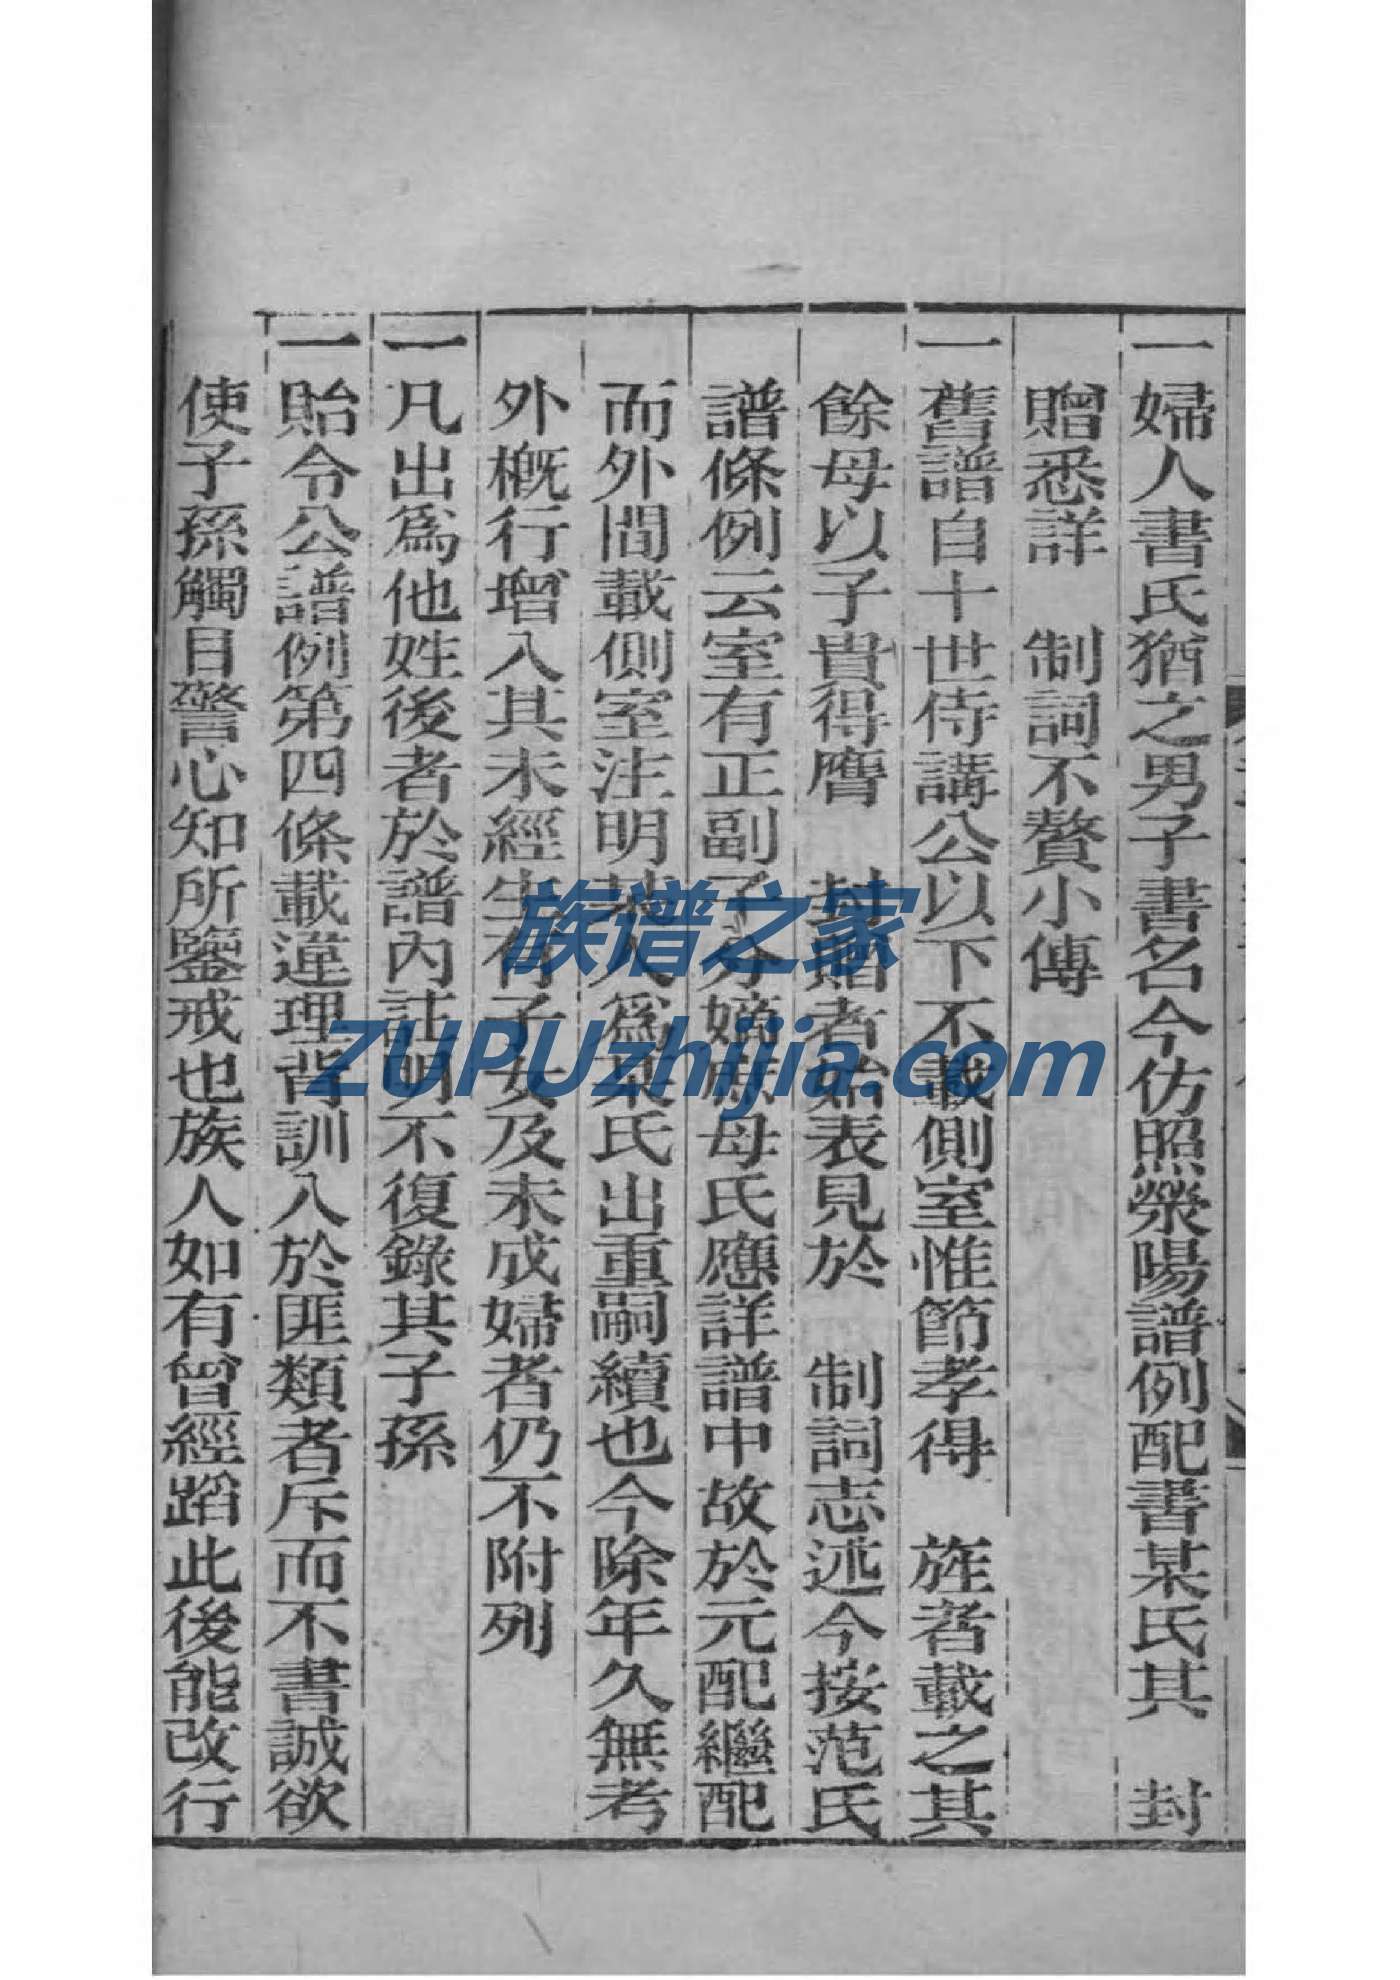 一婦人書氏猶之男子書名今仿照滎陽譜例配書某氏其　封
贈悉詳　制詞不贅小傳
一舊譜自十世侍講公以下不載側室惟節孝得　旌者載之其
餘母以子貴得膺　封贈者始表見於　制詞志述今按范氏
譜條例云室有正副子分嫡庶母氏應詳譜中故於元配繼配
而外間載側室注明某人爲某氏出重嗣續也今除年久無考
外概行增入其未經生有子女及未成婦者仍不附列
一凡出爲他姓後者於譜內註明不復錄其子孫
一貽令公譜例第四條載違理背訓入於匪類者斥而不書誠欲
使子孫觸目警心知所鑒戒也族人如有曾經蹈此後能改行
族谱之家
ZUPUzhijia.com